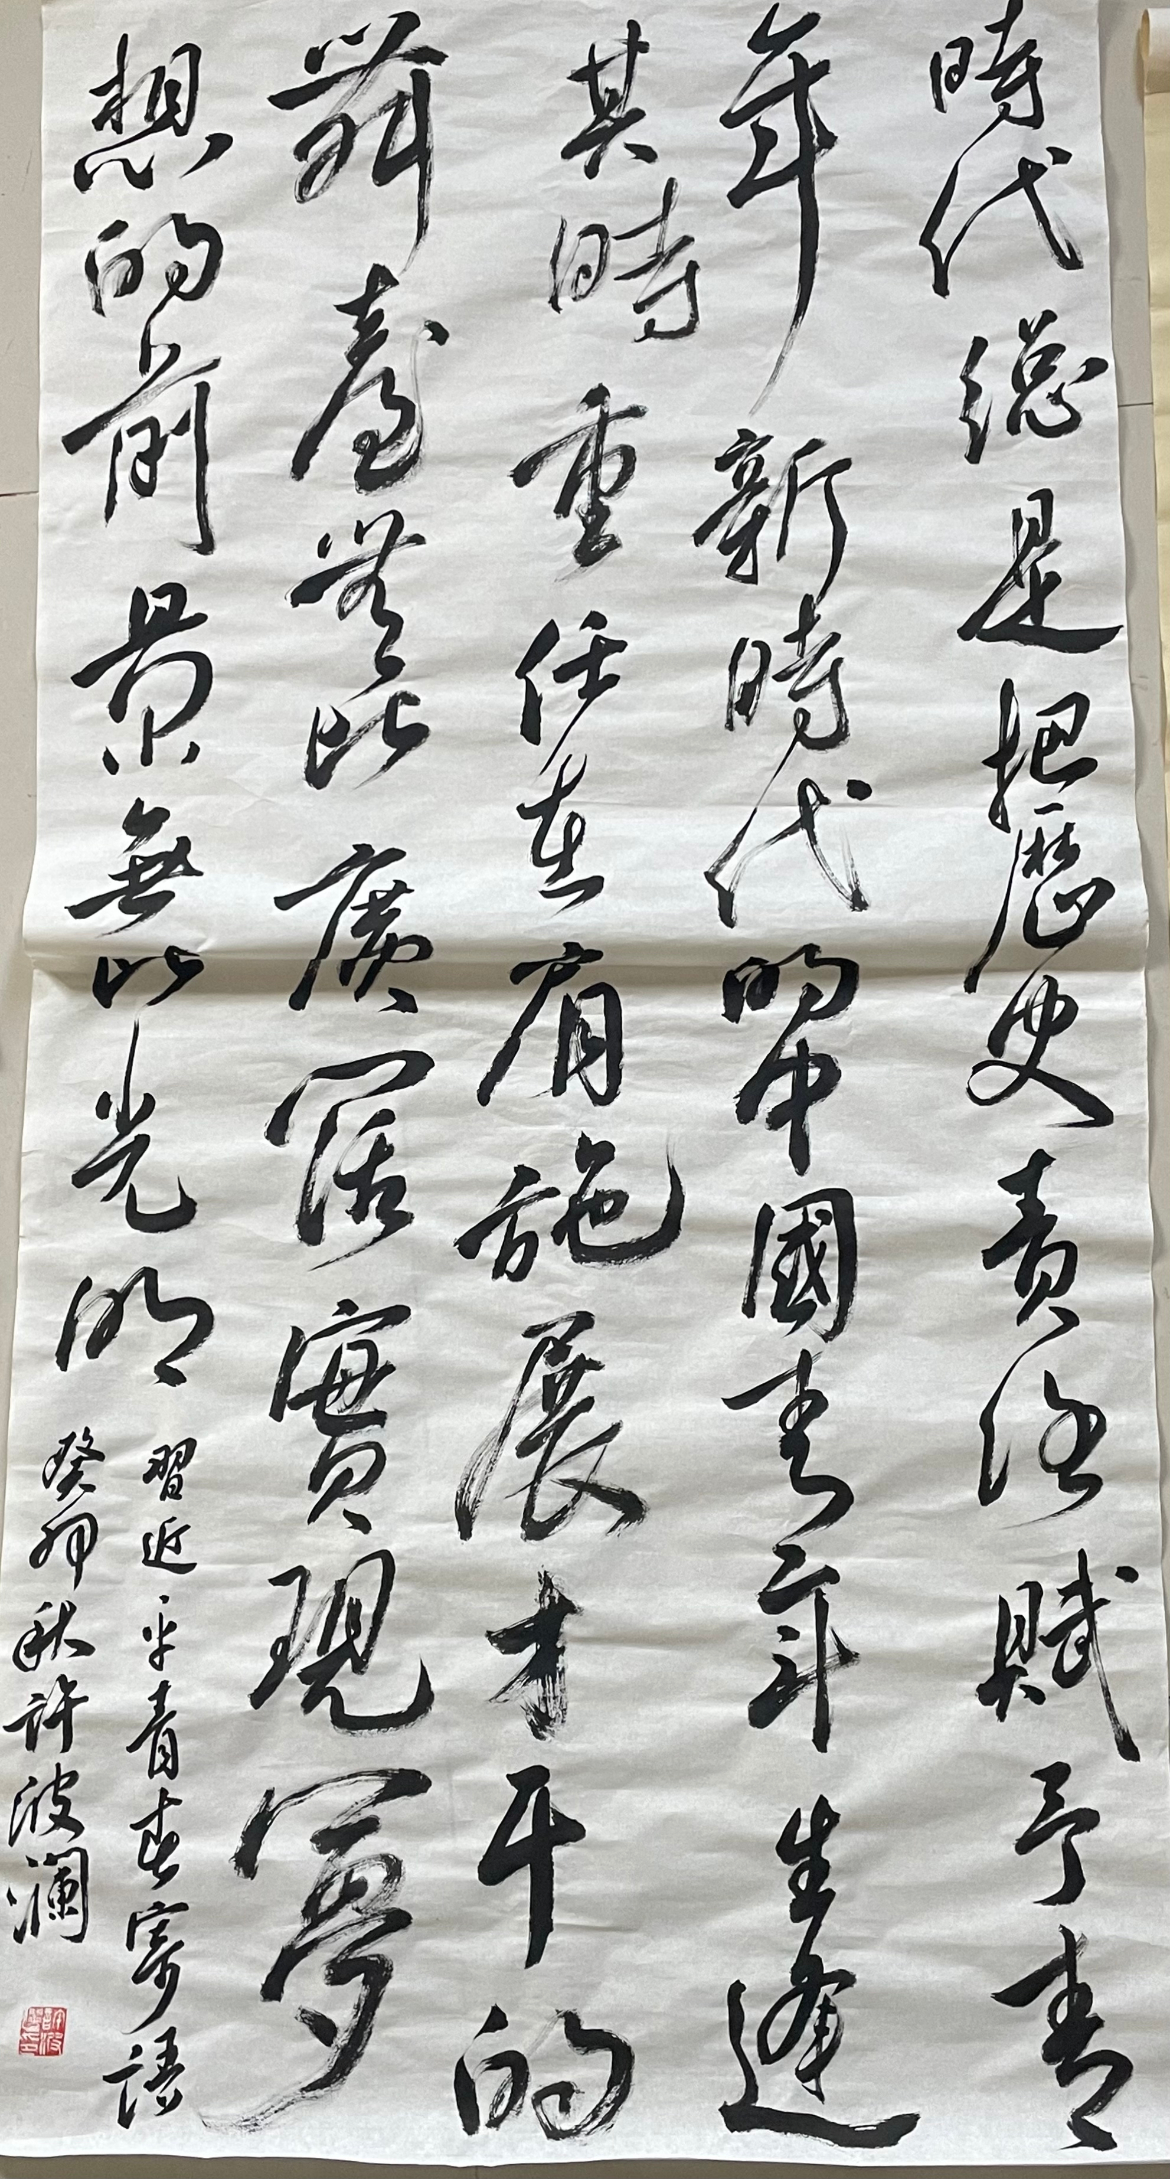 時代總是把歷史責任賦予青
年新時代的中國青年生逢
其時重任在肩施展才干的
舞臺無比廣闊實現夢
想的前景無比光明
習近平青春寄語
癸卯秋許波瀾